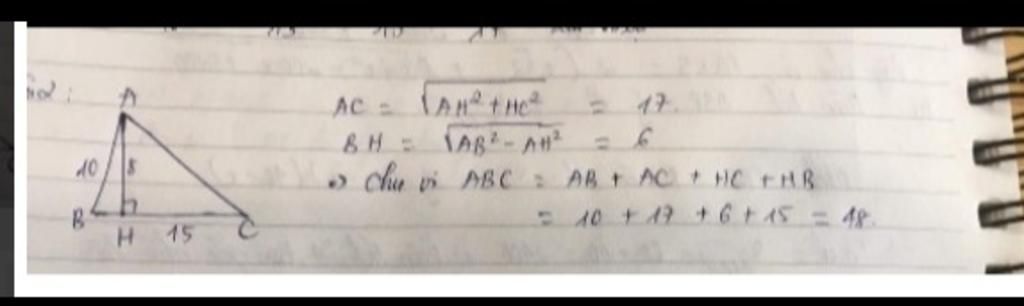 Bài 2:
A
10 8
B H 15 C
AC = √AH² + HC² = 17.
BH = √AB² - AH² = 6
=> Chu vi ABC = AB + AC + HC + HB
= 10 + 17 + 6 + 15 = 48.